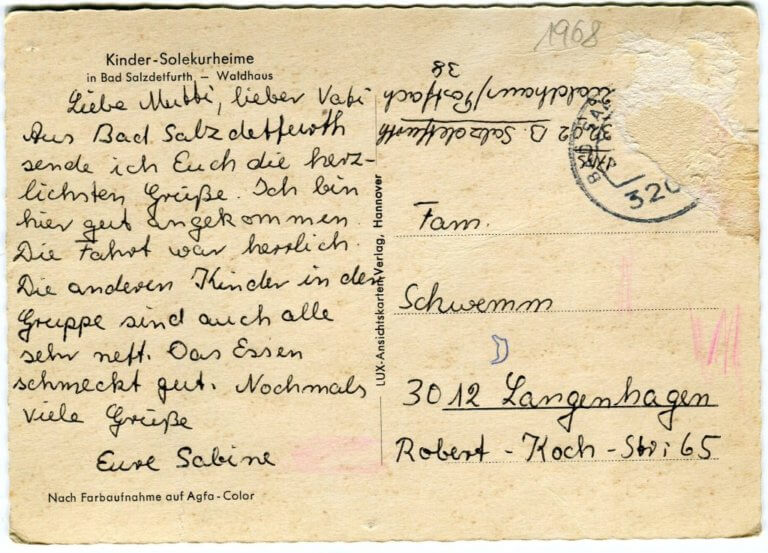 1968
Kinder-Solekurheime
in Bad Salzdetfurth – Waldhaus
Liebe Mutti, lieber Vati
Aus Bad Salzdetfurth
sende ich Euch die herz-
lichsten Grüße. Ich bin
hier gut angekommen.
Die Fahrt war herrlich.
Die anderen Kinder in der
Gruppe sind auch alle
sehr nett. Das Essen
schmeckt gut. Nochmals
viele Grüße
Eure Sabine
Nach Farbaufnahme auf Agfa-Color
LUX-Ansichtskarten-Verlag, Hannover
3202 B. Salzdetfurth
Waldhaus/Postfach
38
320
Fam.
Schwemm
3012 Langenhagen
Robert-Koch-Str. 65